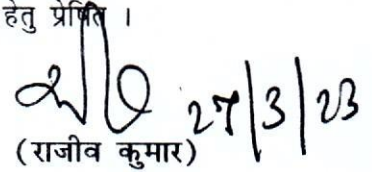 हेतु प्रेषित ।
27/3/23
(राजीव कुमार)